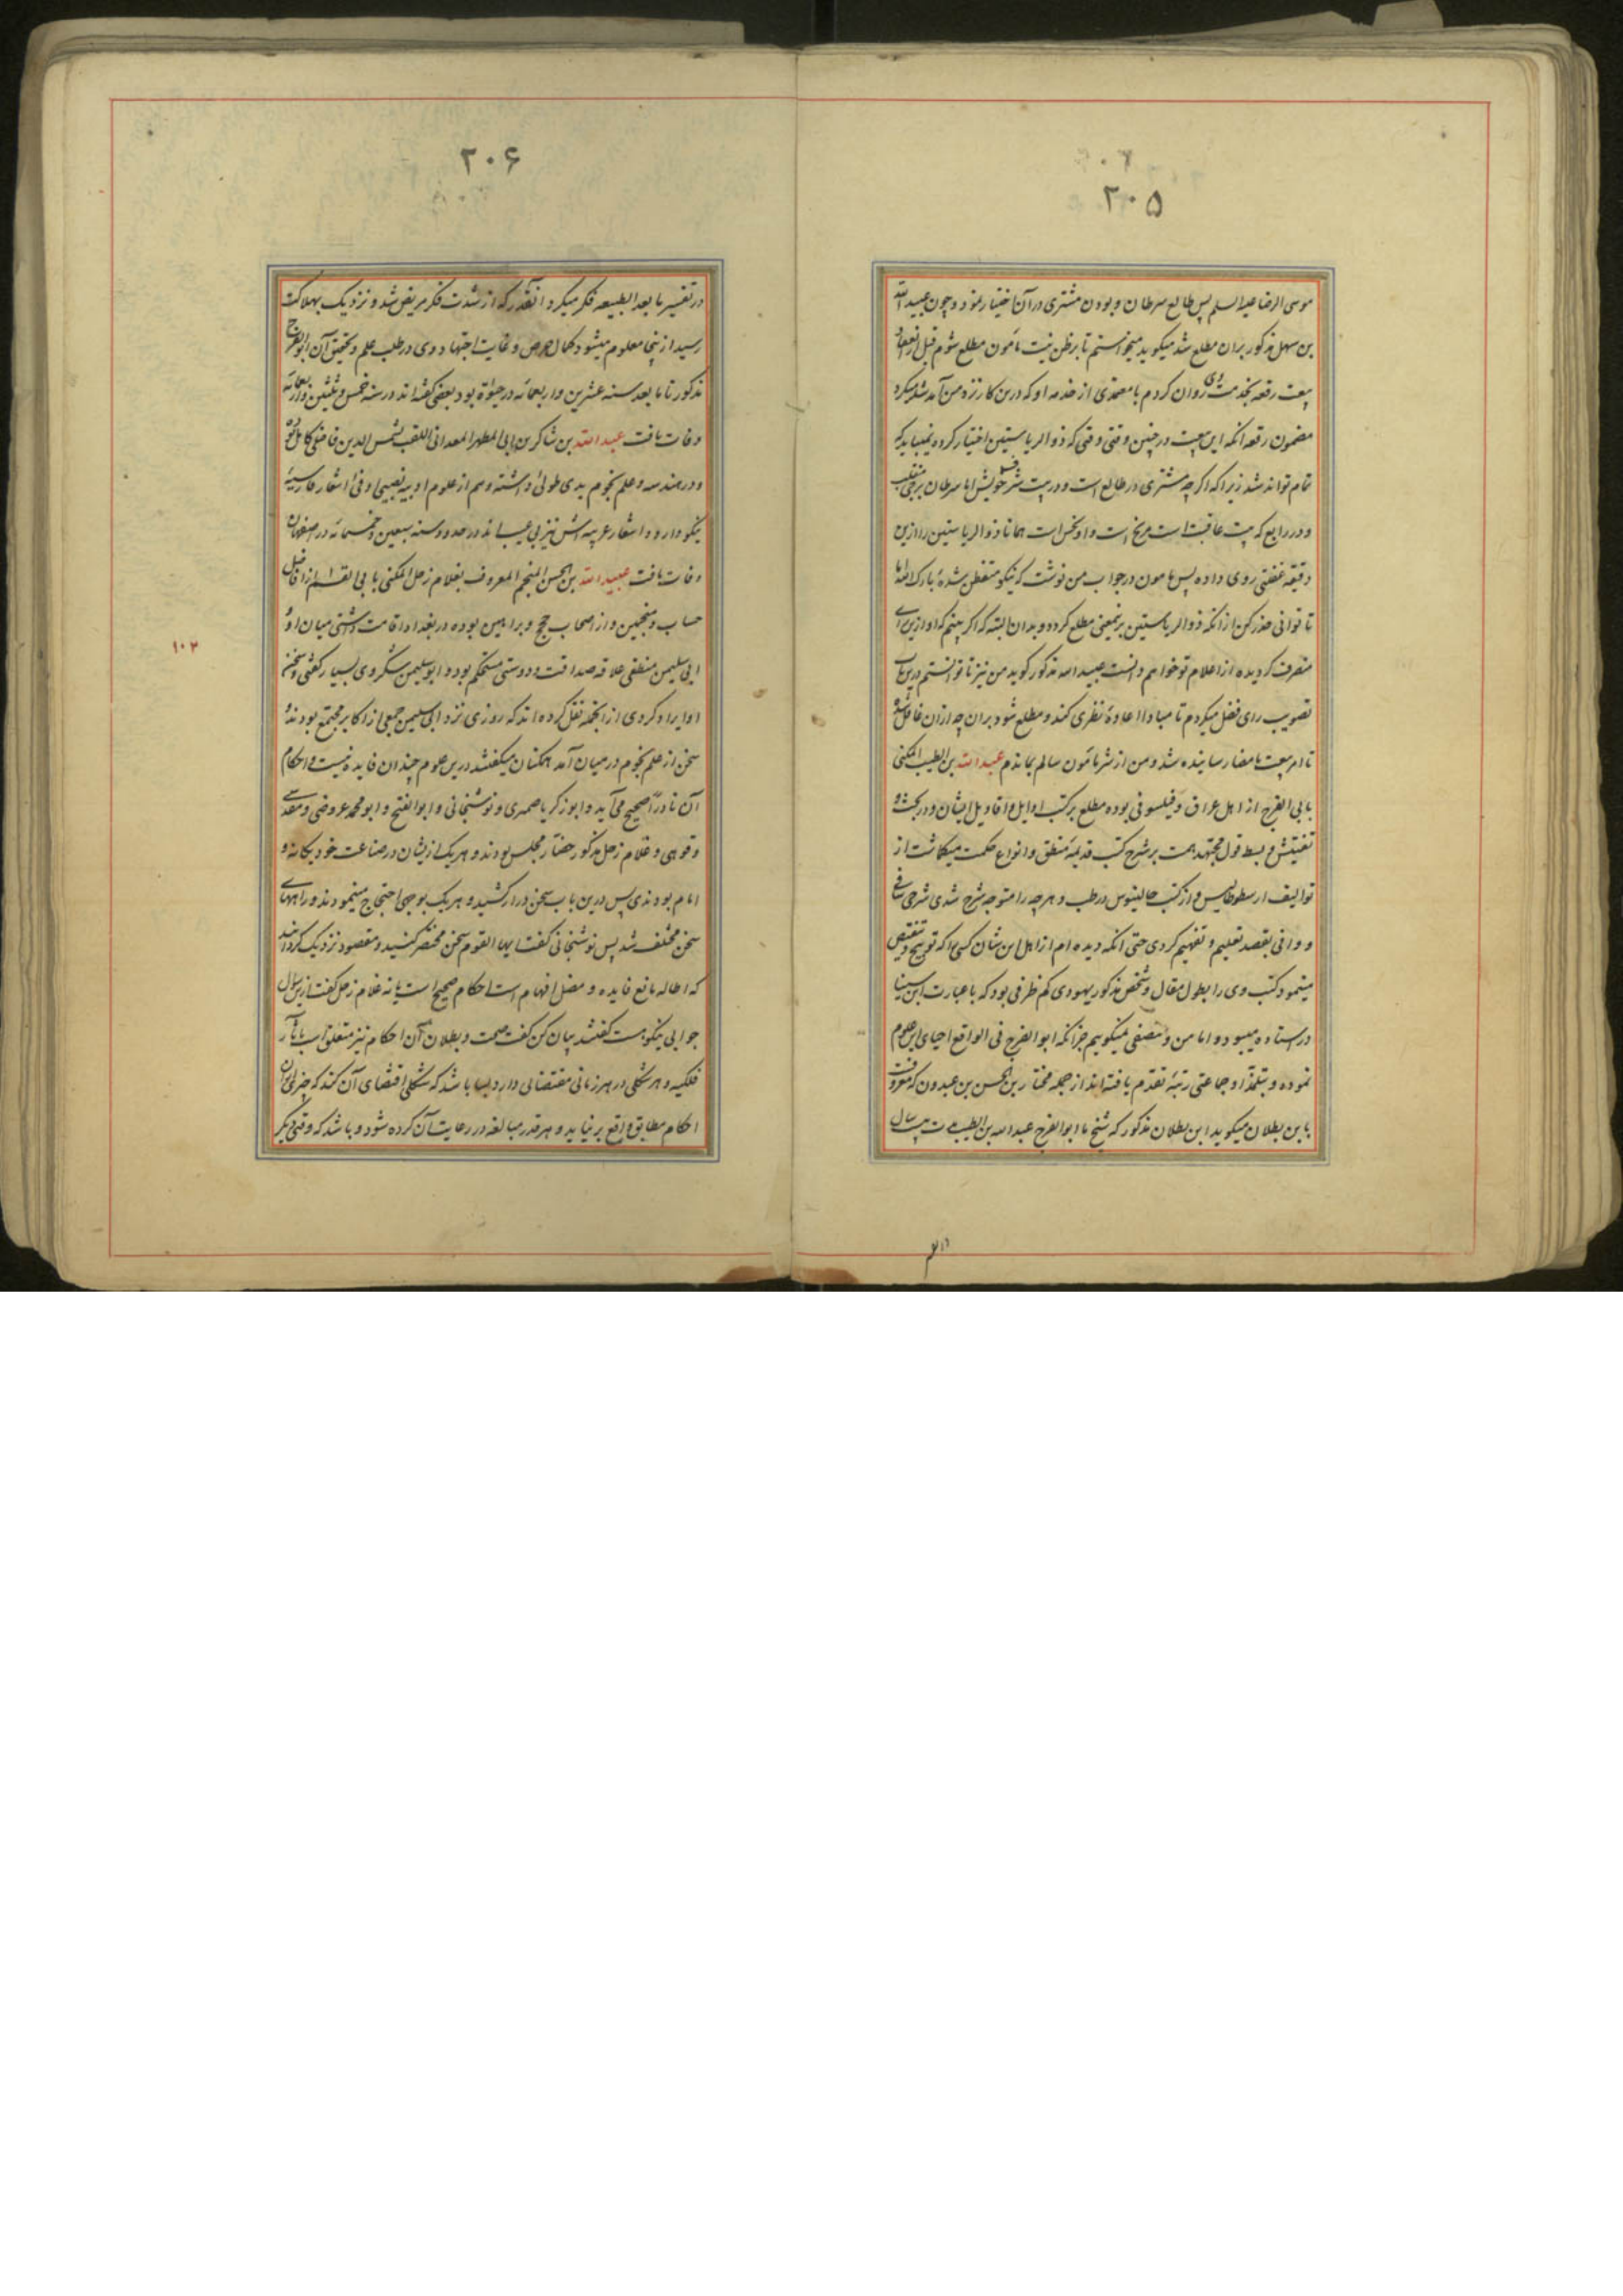 ۲۰۵
موسی الرضا علیه السلم پس طالع سرطان و بودن مشتری در آن اختیار نمود و چون عبید الله
بن سهل مذکور بران مطلع شد میکوید میخواستم تا بر ظن نیت مأمون مطلع شوم قبل از انعقاد
بیعت رقعه بخدمت وی روان کردم با معتمدی از خدمه او که درین کار نزد من آمد شد میکرد
مضمون رقعه انکه این بیعت در چنین وقتی وقتی که ذو الریاستین اختیار کرده نمیباید که
تمام تواند شد زیرا که اکر چه مشتری در طالع است و در بیت شرف خویش اما سرطان برجی منقلب
و در رابع که بیت عاقبت است مریخ است و او نحس است همانا ذو الریاستین را ازین
دقیقه غفلتی روی داده پس مامون در جواب من نوشت که نیکو متفطن شدهٔ بارک الله اما
تا توانی حذر کن از انکه ذو الریاستین برینمعنی مطلع کردد و بدان البته که اکر بینم که او ازین رای
منصرف کردیده از اعلام تو خواهم دانست عبید الله مذکور کوید من نیز تا توانستم درین باب
تصویب رای فضل میکردم تا مبادا اعادهٔ نظری کند و مطلع شود بران چه ازان غافل شده
تا امر بیعت بامضا رسانیده شد و من از شر مأمون سالم بماندم عبد الله بن الطیب المکنی
بابی الفرج از اهل عراق و فیلسوفی بوده مطلع بر کتب اوایل و اقاویل ایشان و در بحث و
تفتیش و بسط قول مجتهد همت بر شرح کتب قدیمهٔ منطق و انواع حکمت میکاشت از
توالیف ارسطوطالیس و از کتب جالینوس در طب و هر چه را متوجه شرح شدی شرحی شافی
و وافی بقصد تعلیم و تفهیم کردی حتی انکه دیده ام از اهل این شان کسی را که توبیخ و تنقیص
مینمود کتب وی را بطول مقال و شخص مذکور یهودی کم ظرفی بود که با عبارت ابن سینا
در استاده میبود و اما من و منصفی نمیکوییم جز انکه ابو الفرج فی الواقع احیای این علوم
نموده و بتلمذ او جماعتی رتبهٔ تقدم یافته اند از جمله مختار بن الحسن بن عبدون که معروفست
بابن بطلان میکوید ابن بطلان مذکور که شیخ ما ابو الفرج عبد الله بن الطیب مدت بیست سال
۲۰۶
در تفسیر مابعد الطبیعه فکر میکرد انقدر که از شدت فکر مریض شد و نزدیک بهلاکت
رسید ازینجا معلوم میشود کمال حرص و غایت اجتهاد وی در طلب علم و تحقیق آن ابو الفرج
مذکور تا ما بعد سنه عشرین و اربعمائه در حیوة بود و بعضی کفته اند در سنه خمس و ثلثین و اربعمائه
وفات یافت عبد الله بن شاکر بن ابی المطهر المعدانی الملقب بشمس الدین فاضلی کامل بوده
و در هندسه و علم نجوم یدی طولی داشته و هم از علوم ادبیه نصیبی اوفی اشعار فارسیهٔ
نیکو دارد و اشعار عربیه اش نیز بی عیب اند در حدود سنه سبعین و خمسمائه در اصفهان
وفات یافت عبید الله بن الحسن المنجم المعروف بغلام زحل المکنی بابی القاسم از افاضل
حساب و منجمین و از اصحاب حجج و براهین بوده در بغداد اقامت داشتی میان او و
ابی سلیمن منطقی علاقه صداقت و دوستی مستحکم بود و ابو سلیمن شکر وی بسیار کفتی و سخن
او ایراد کردی از انجمله نقل کرده اند که روزی نزد ابی سلیمن جمعی از اکابر مجتمع بودند و
سخن از علم نجوم در میان آمد همکنان میکفتند درین علوم چندان فایده نیست و احکام
آن نادراً صحیح می آید و ابو زکریا صیمری و نوشنجانی و ابو الفتح و ابو محمد عروضی و مقدسی
و قوهی و غلام زحل مذکور حضار مجلس بودند و هر یک ازیشان در صناعت خود یکانه و
امام بودندی پس درین باب سخن دراز کشید و هر یک بوجهی احتجاج مینمودند و راههای
سخن مختلف شد پس نوشنجانی کفت ایها القوم سخن مختصر کنید و مقصود نزدیک کردانید
که اطاله مانع فایده و مضل افهام است احکام صحیح است یا نه غلام زحل کفت ازین سوال
جوابی نیکو هست کفتند بیان کن کفت صحت و بطلان آن احکام نیز متعلق است بآثار
فلکیه و هر شکلی در هر زمانی مقتضائی دارد بسا باشد که شکلی اقتضای آن کند که چیزی از آن
احکام مطابق واقع بر نیاید و هر قدر مبالغه در رعایت آن کرده شود و باشد که وقتی دیکر
۱۰۲